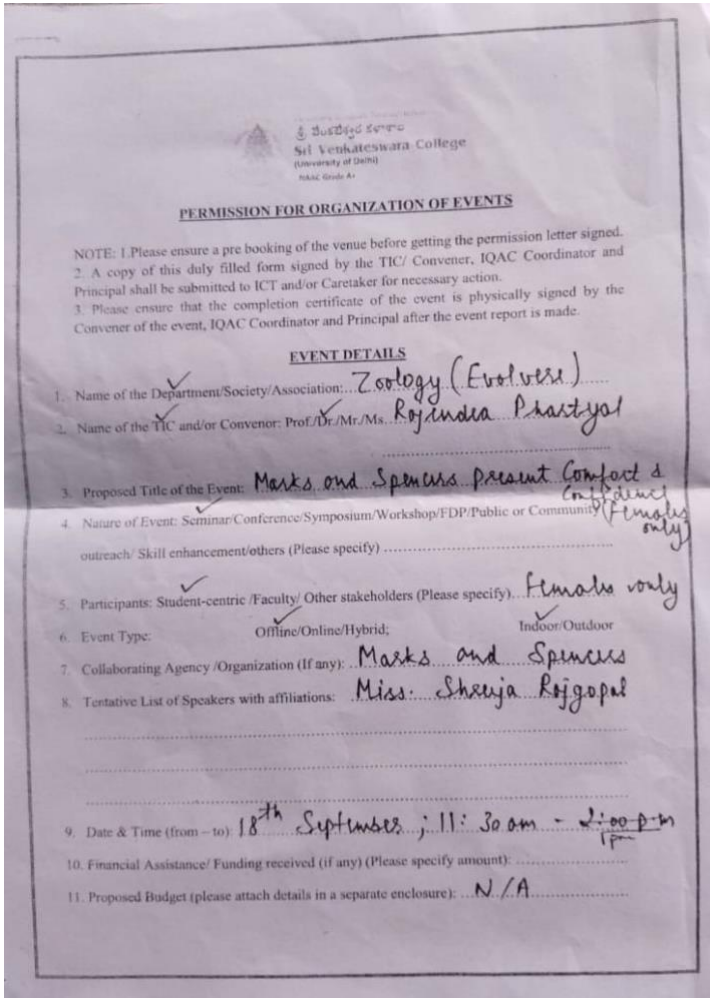 Sri Venkateswara College
(University of Delhi)
NAAC Grade A+
PERMISSION FOR ORGANIZATION OF EVENTS
NOTE: 1.Please ensure a pre booking of the venue before getting the permission letter signed.
2. A copy of this duly filled form signed by the TIC/ Convener, IQAC Coordinator and
Principal shall be submitted to ICT and/or Caretaker for necessary action.
3. Please ensure that the completion certificate of the event is physically signed by the
Convener of the event, IQAC Coordinator and Principal after the event report is made.
EVENT DETAILS
1. Name of the Department/Society/Association:...Zoology (Evolvere)......
2. Name of the TIC and/or Convenor: Prof./Dr./Mr./Ms...Rajendra Phartyal
3. Proposed Title of the Event: Marks and Spencers Present Comfort & Confidence
4. Nature of Event: Seminar/Conference/Symposium/Workshop/FDP/Public or Community (Females only)
outreach/ Skill enhancement/others (Please specify) ......................................................
5. Participants: Student-centric /Faculty/ Other stakeholders (Please specify)...Females only
6. Event Type: Offline/Online/Hybrid; Indoor/Outdoor
7. Collaborating Agency /Organization (If any): ..Marks and Spencers
8. Tentative List of Speakers with affiliations: Miss. Rajgopal
9. Date & Time (from – to): 18th September ; 11:30am - 2:00 p.m 1pm
10. Financial Assistance/ Funding received (if any) (Please specify amount): ..........................
11. Proposed Budget (please attach details in a separate enclosure): ...N/A......................